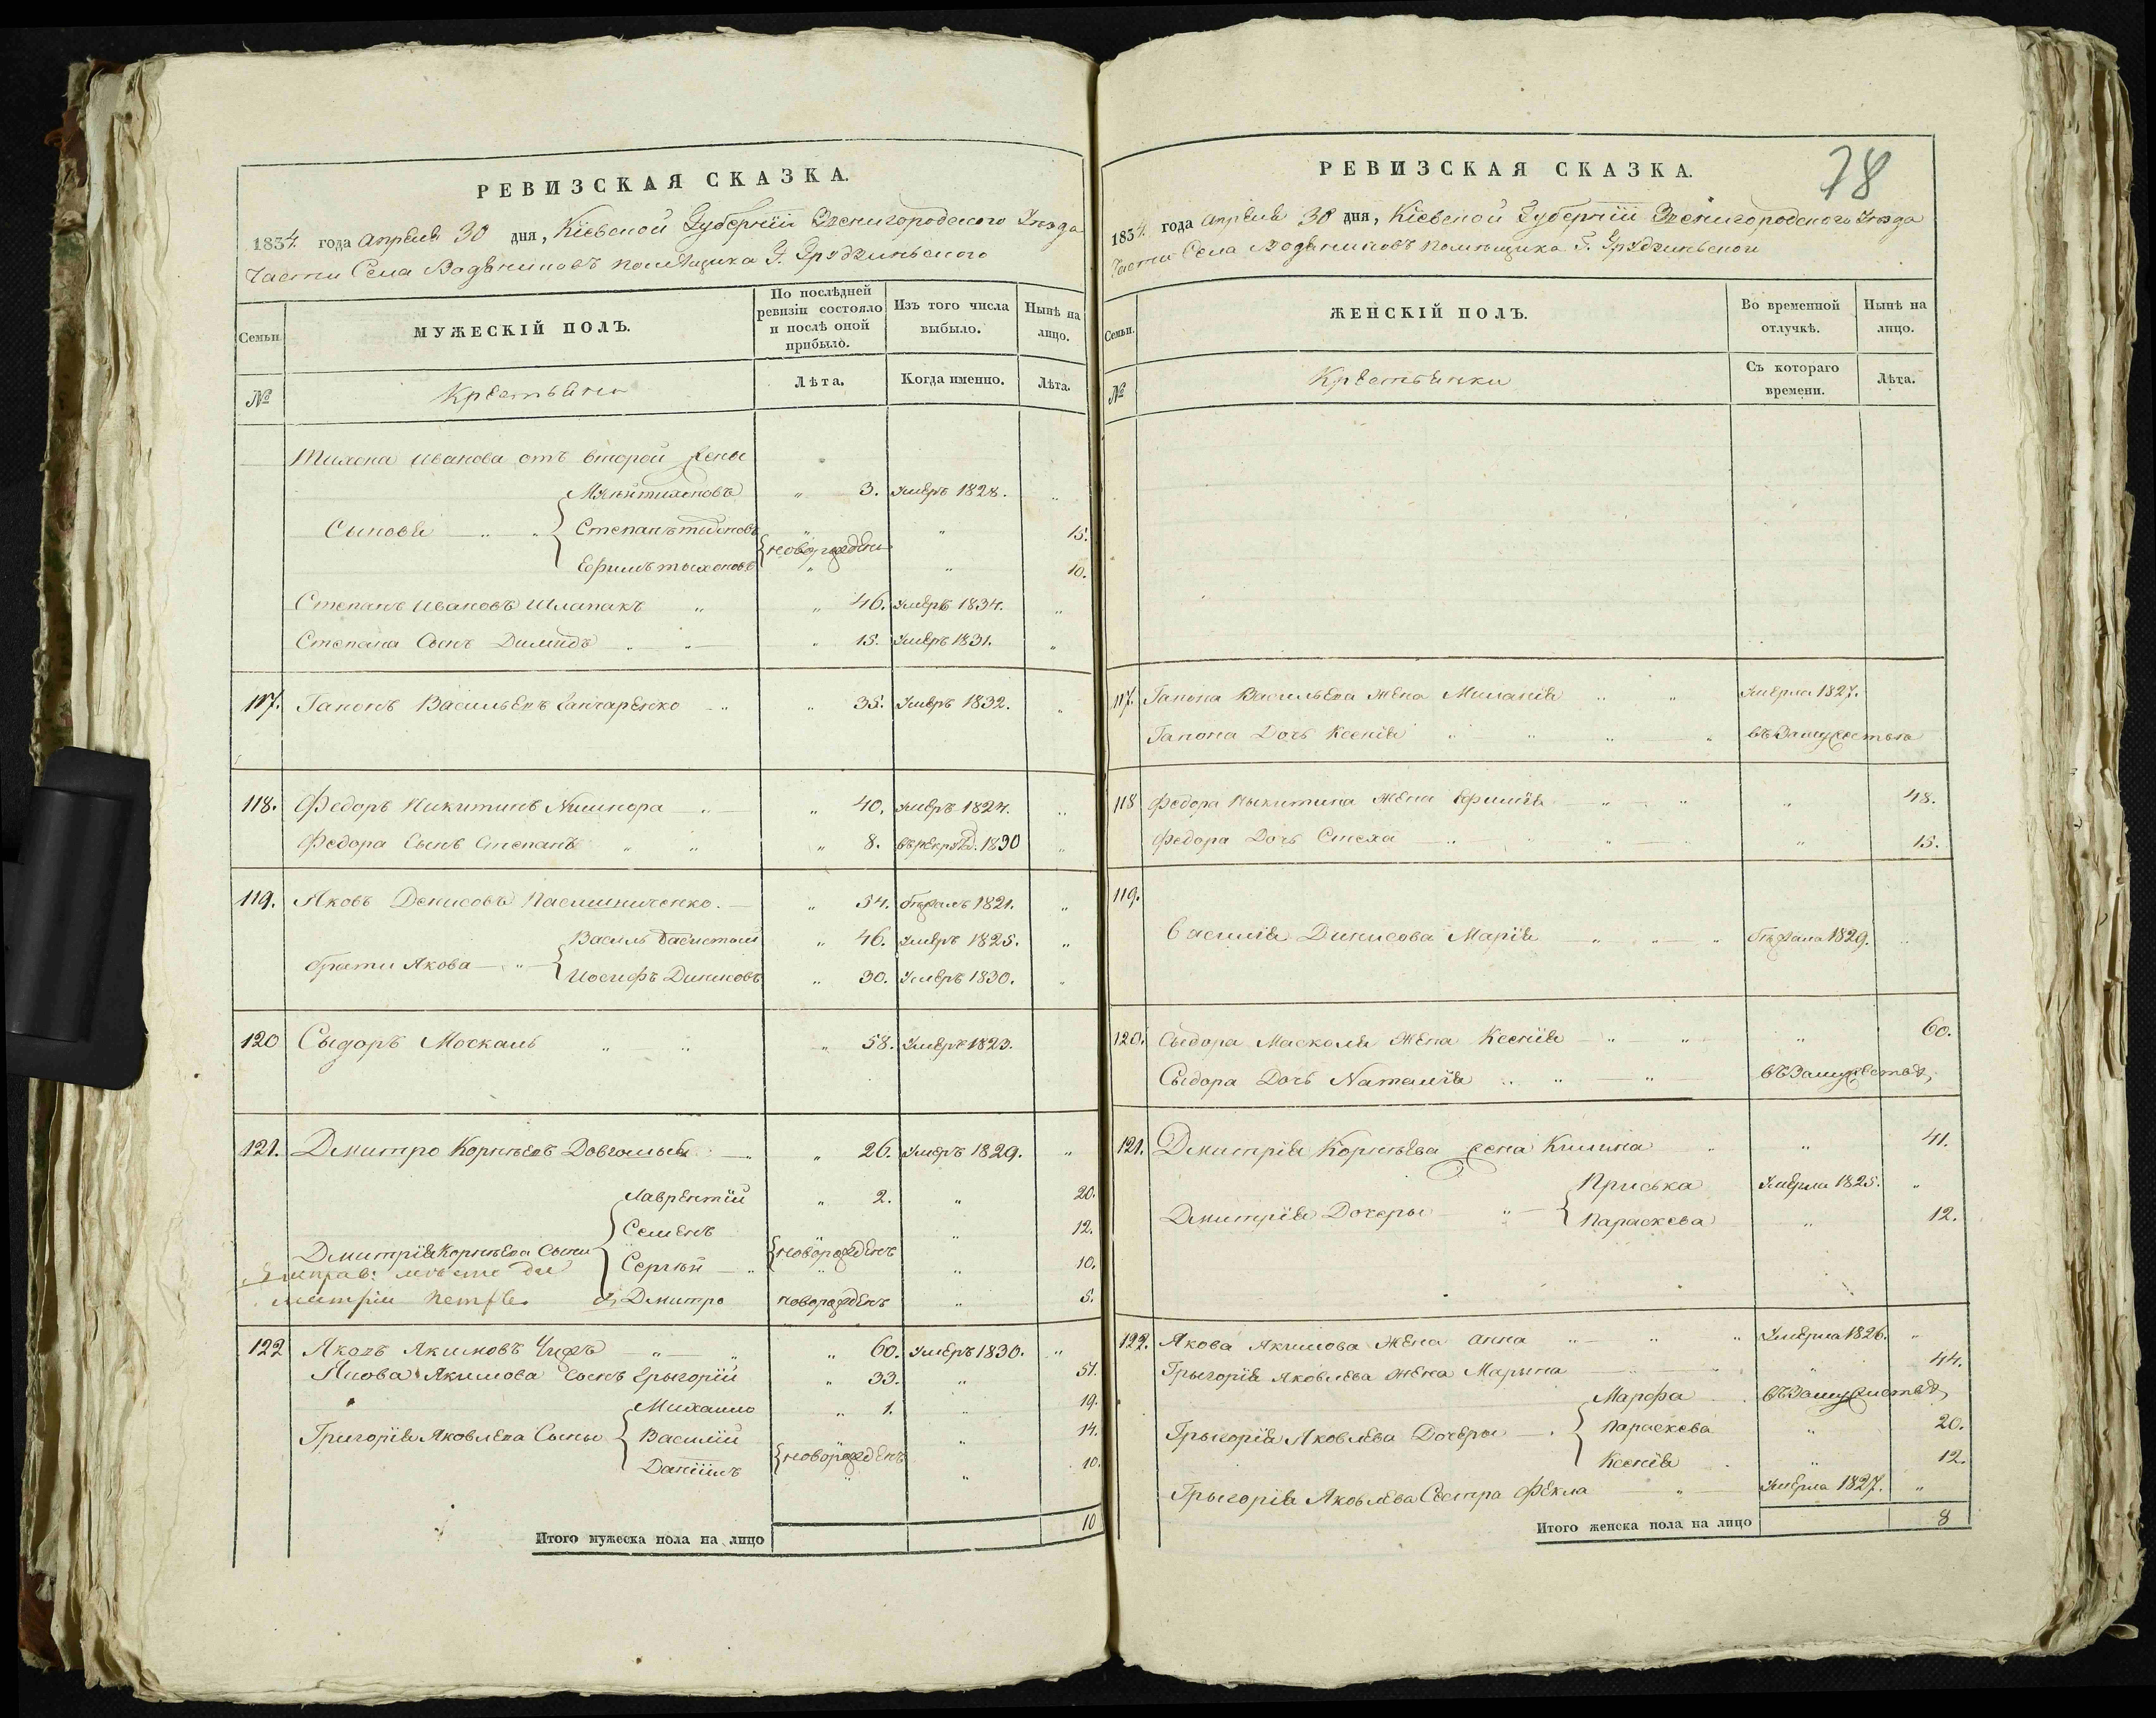 РЕВИЗСКАЯ СКАЗКА.
1834 года Апреля 30 дня, Кіевской Губерніи Звенигородского Уезда
Части Села Водяниковъ помѣщика Г. Грудзинского
Семьи
МУЖЕСКІЙ ПОЛЪ.
По послѣдней ревизіи состояло и послѣ оной прибыло.
Изъ того числа выбыло.
Нынѣ на лицо.
№
Крестьяне
Лѣта.
Когда именно.
Лѣта.
Тихона Иванова отъ второй жены
Тихоновъ „ 3. умеръ 1828. „
Сыновя „ „ Степанъ Тихоновъ новорождени „ 15.
Ефимъ Тихоновъ „ „ 10.
Степанъ Ивановъ Шлапакъ „ „ 46. умеръ 1834. „
Степана Сынъ Демидъ „ „ „ 15. умеръ 1831. „
117. Гапонъ Васильевъ Ганчаренко „ „ 35. умеръ 1832. „
118. Федоръ Никитинъ „ „ 40. умеръ 1824. „
Федора Сынъ Степанъ „ „ „ 8. 1830 „
119. Яковъ Денисовъ Пасишниченко. „ 54. бежалъ 1821. „
Василь „ 46. умеръ 1825. „
брати Якова „ Иосифъ „ 30. умеръ 1830. „
120 Сыдоръ Москаль „ „ „ 58. умеръ 1823.
121. Дмитро Корнѣевъ Довгалывъ „ „ 26. умеръ 1829. „
Лаврентій „ 2. „ 20.
Семенъ „ 12.
Дмитрія Корнѣева Сыны новорожденъ
Сергѣй „ „ „ 10.
Дмитро новорожденъ „ 5.
122 Яковъ Якимовъ Чижъ „ „ „ 60. умеръ 1830. „
Якова Якимова Сынъ Грыгорій „ 33. „ 51.
Михайло „ 1. „ 19.
Григорія Яковлева Сыны Василій „ 14.
новорожденъ
Даніилъ „ „ 10.
Итого мужеска пола на лицо 10
78
РЕВИЗСКАЯ СКАЗКА.
1834 года Апреля 30 дня, Кіевской Губерніи Звенигородского Уезда
Части Села Водяниковъ помѣщика Г. Грудзинского
Семьи.
ЖЕНСКІЙ ПОЛЪ.
Во временной отлучкѣ.
Нынѣ на лицо.
№
Крестьянки
Съ котораго времени.
Лѣта.
117. Гапона Васильева жена Миланія „ „ умерла 1827.
Гапона Дочь Ксенія „ „ „ „ въ замужестве
118 Федора Ныкитина жена Ефимія „ „ „ 48.
Федора Дочь Стеха „ „ „ „ „ 15.
119.
Василія Динисова Марія „ „ „ бежала 1829. „
120. Сыдора Маскаля жена Ксенія „ „ „ 60.
Сыдора Дочь Наталія „ „ „ въ замужестве,
121. Дмитрія Корнѣева жена Килина „ „ 41.
Приська умерла 1825. „
Дмитрія Дочеры „
Параскева „ 12.
122. Якова Якимова жена Анна „ „ „ умерла 1826. „
Грыгорія Яковлева жена Марына „ „ „ 44.
Марфа въ замужестве,
Грыгорія Яковлева Дочеры Параскева „ 20.
Ксенія „ 12.
Грыгорія Яковлева Сестра Фекла „ умерла 1827. „
Итого женска пола на лицо 8